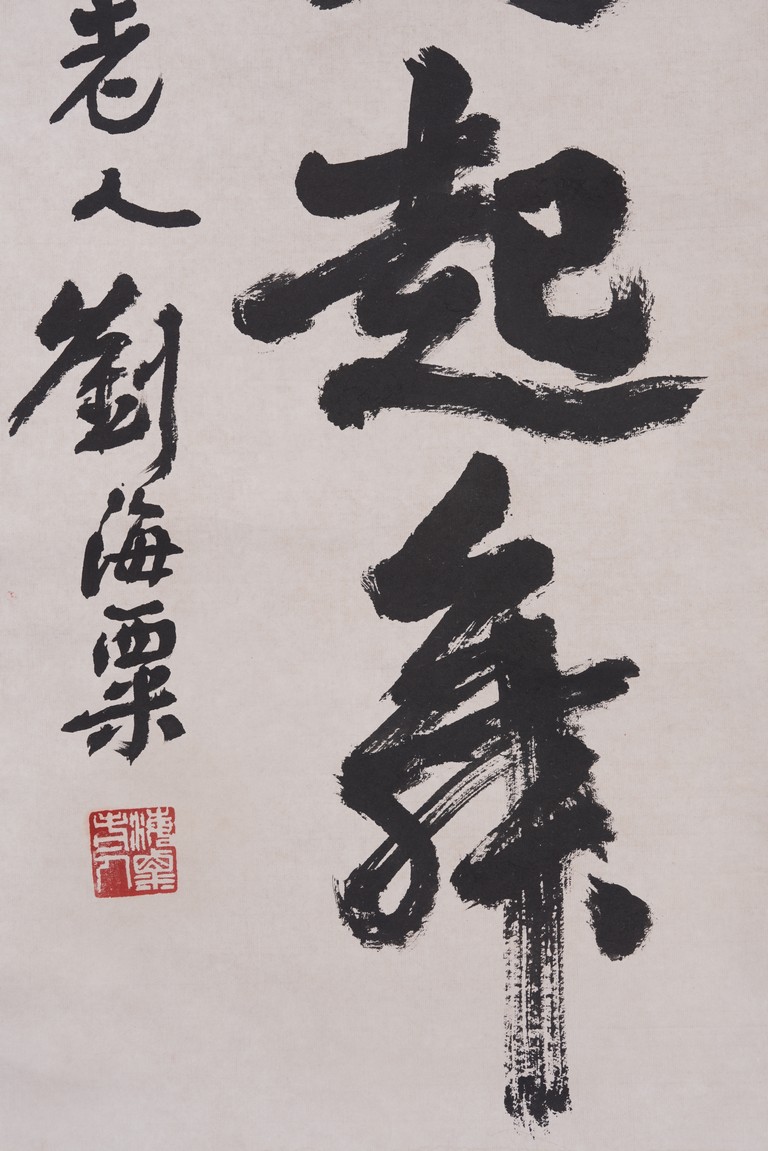 起舞
老人劉海粟
海粟老人